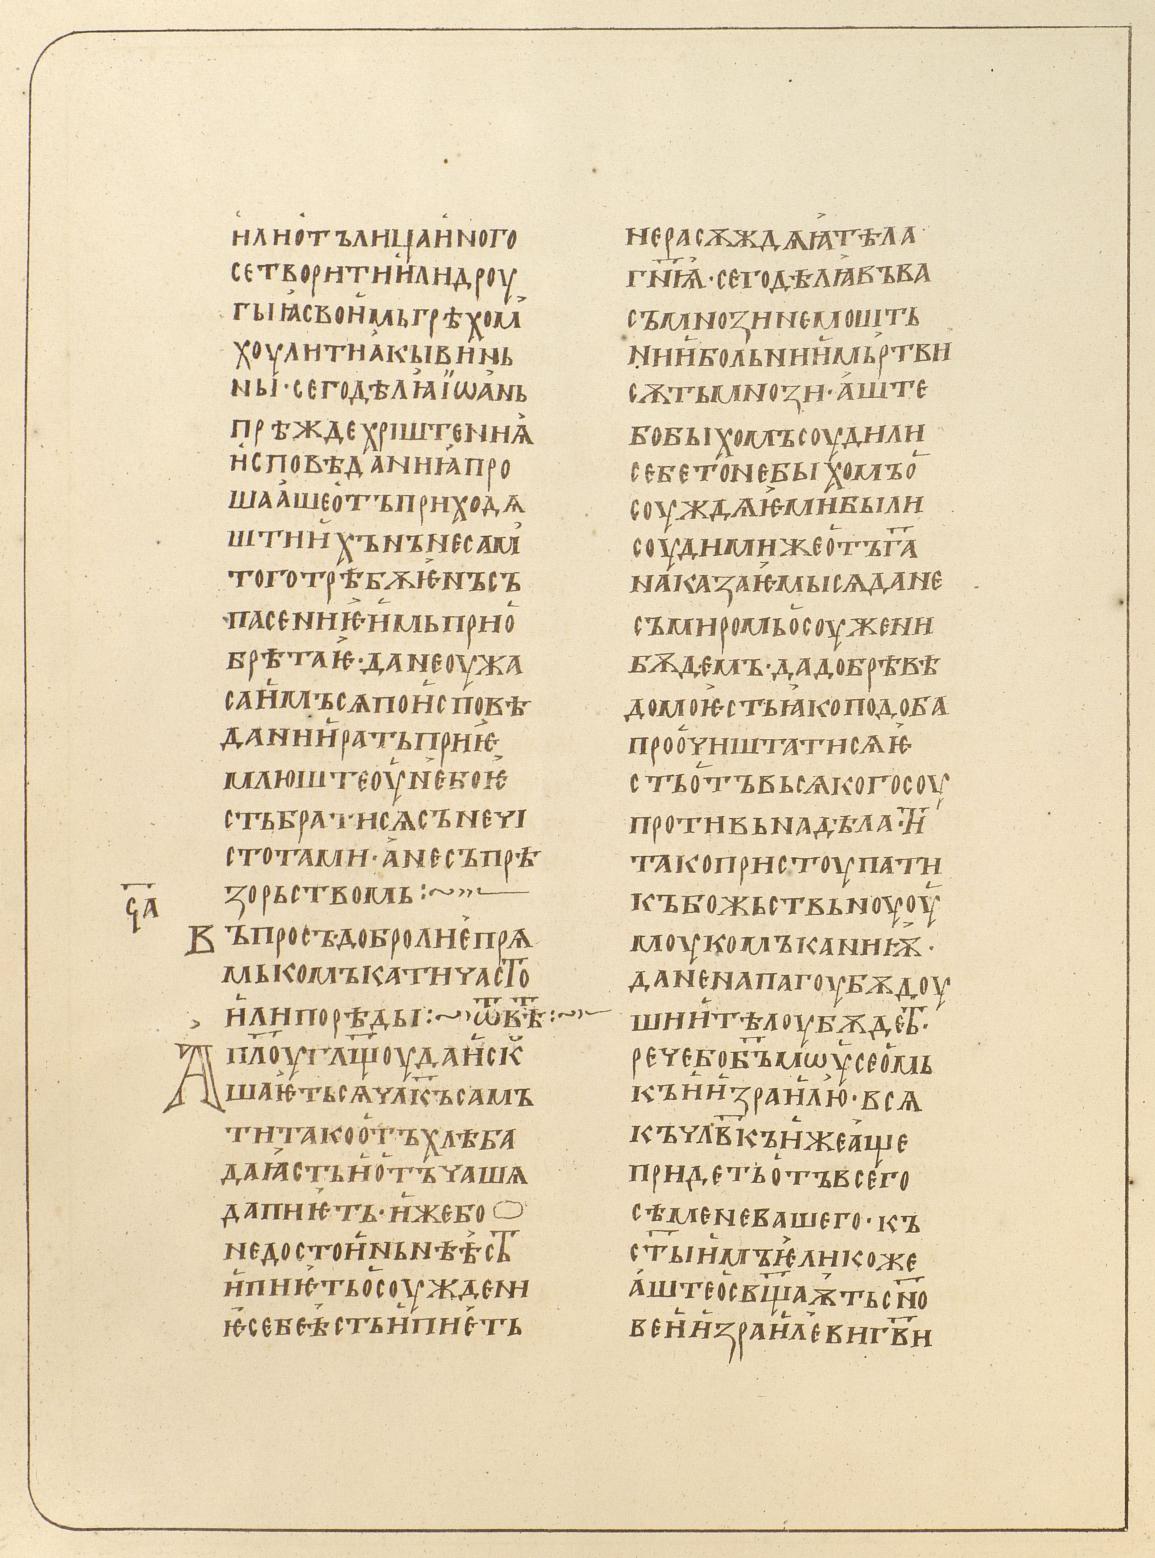 и҆ли о҆тълица и҆ного
сетворити и҆ли дроу
гыꙗ҆ свои҆мь грѣхом̓
хоулитн а҆кы вин̑ь
ны · сего дѣлꙗ҆ ї҆ѡа҆нь
прѣжде хрїштенниꙗ҆
и҆сповѣданниꙗ҆ про
шаа҆ше о҆тъ приходѧ
штиих̑ъ нъ не сам̓
того трѣбѫѥ҆ нъ съ
пасенниѥ҆ и҆мь прио҆
брѣтаѥ҆ · да не оужа
саи҆мъ сѧ по и҆сповѣ
даннии҆ рать приѥ҆
млюште оу҆ не бо ѥ҆
сть брати сѧ съ неч꙯і
стотами · а҆ не съ прѣ
зорьствомь :~»—
с҃а
Въпросъ · добро ли е҆ прѧ
мь комъкати часто
и҆ли порѣды :~» ѿвѣ :~»—
Апл҃оу гл҃щоу да и҆ск꙯
шаѥ҆ть сѧ чл҃къ самъ
ти тако о҆тъ хлѣба
да ꙗ҆сть и҆ о҆тъ чашѧ
да пиѥ҆ть · и҆же бо
недостои҆нь нъ ѣ҆стъ
и҆ пиѥ҆ть о҆соуждени
ѥ҆ себе ѣ҆сть и҆ пиѥ҆ть
не расѫждѧꙗ҆ тѣла
гн҃ꙗ҆ · сего дѣлꙗ҆ въ ва
съ мнози немошть
нии҆ больнии҆ мь҆ртви
сѫть мнози · а҆ште
бо быхомъ соудили
себе то не быхомъ о҆
соуждѧѥ҆ми были
соудими же о҆тъ г҃а
на҆казаѥ҆мы сѧ да не
съ миромь о҆соужени
бѫдемъ · да добрѣ вѣ
домо ѥ҆сть ꙗ҆ко подоба
проо҆чиштати сѧ ѥ҆
сть о҆тъ вьсѧкого соу
противьна дѣла · и҆
тако пристоупати
къ божьствьноу оу҆
моу комъканниѭ҆ ·
да не на пагоубѫ доу
ши и҆ тѣлоу бѫдетъ ·
рече бо бъ҃ мѡу҆сео҆мь
къ и҆израи҆лю҆ · всѧ
къ чл҃вкъ и҆же а҆ще
придеть о҆тъ всего
сѣмене вашего · къ
ст҃ыи҆мъ ѥ҆лико же
а҆ште о҆св҃щаѭ҆ть сн҃о
ве и҆израи҆лѥ҆ви гв҃и